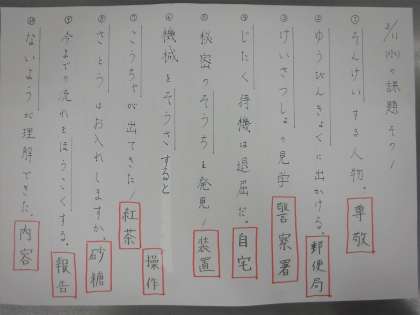 2/11(水)の課題その1
①そんけいする人物。尊敬
②ゆうびんきょくに出かける。郵便局
③けいさつしょの見学 警察署
④じたく待機は退屈だ。自宅
⑤秘密のそうちを発見！装置
⑥機械をそうさすると 操作
⑦こうちゃが出てきた！紅茶
⑧さとうはお入れしますか。砂糖
⑨今までの流れをほうこくする。報告
⑩ないようが理解できた。内容